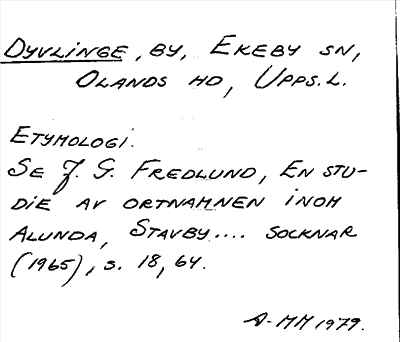 Dyvlinge, by, Ekeby sn,
Olands hd, Upps.l.
Etymologi.
Se J. G. Fredlund, En stu-
die av ortnamnen inom
Alunda, Stavby.... socknar
(1965), s. 18, 64.
A-MM 1979.